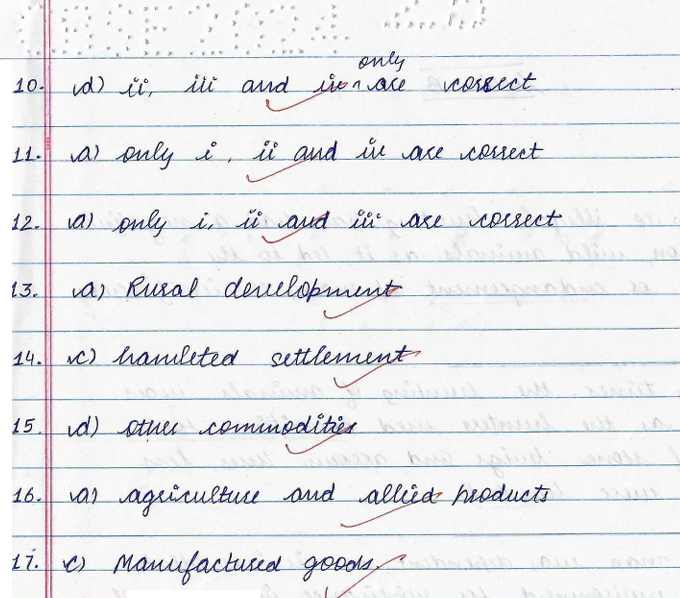 10. d) ii, iii and iv only are correct
11. a) only i, ii and iv are correct
12. a) only i, ii and iii are correct
13. a) Rural development
14. c) hamleted settlement
15. d) other commodities
16. a) agriculture and allied products
17. c) Manufactured goods.